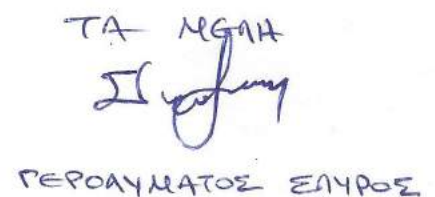 ΤΑ ΜΕΛΗ
ΓΕΡΟΛΥΜΑΤΟΣ ΣΠΥΡΟΣ